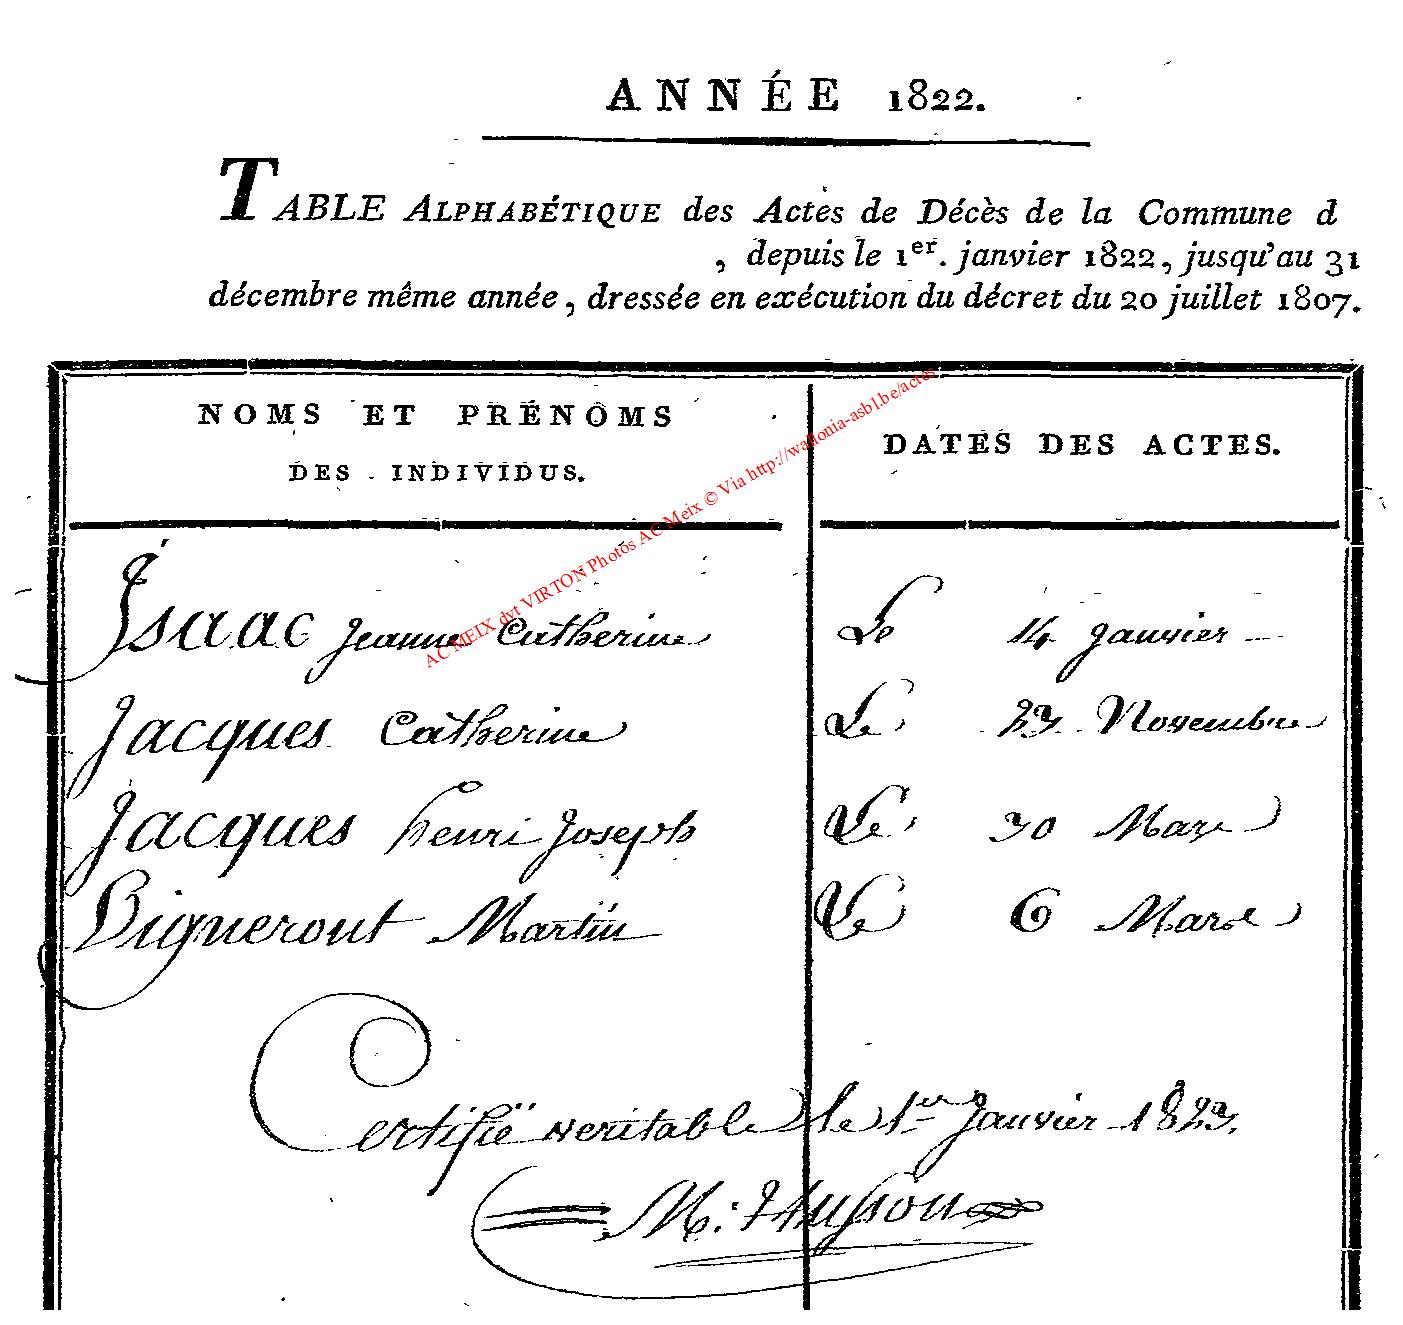 ANNÉE 1822.
TABLE ALPHABÉTIQUE des Actes de Décès de la Commune d
, depuis le 1er. janvier 1822, jusqu'au 31
décembre même année, dressée en exécution du décret du 20 juillet 1807.
NOMS ET PRÉNOMS
DES INDIVIDUS.
DATES DES ACTES.
AC MEIX dvt VIRTON Photos AC Meix © Via http://wallonia-asbl.be/actes
Isaac Jeanne Catherine Le 14 janvier
Jacques Catherine Le 23 Novembre
Jacques henri Joseph Le 30 Mars
Vigneront Martin Le 6 Mars
Certifié veritable le 1er Janvier 1823.
M: Husson